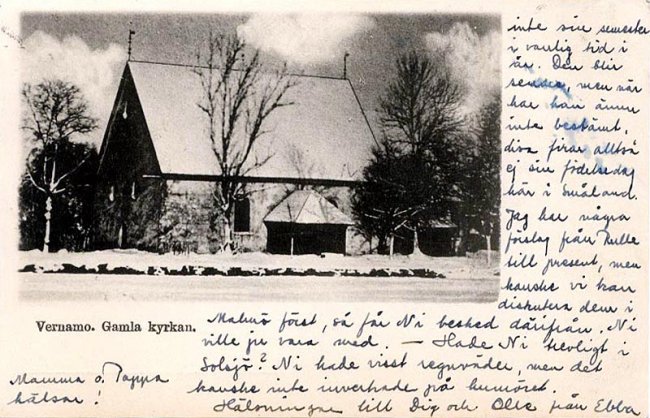 inte sin semester
i vanlig tid i
år. Den blir
senare, men när
har han ännu
inte bestämt,
firar alltså
ej sin födelsedag
här i Småland.
Jag har några
förslag från Nulle
till present, men
kanske vi kan
diskutera dem i
Malmö först, så får Ni besked därifrån. Ni
ville ju vara med. — Hade Ni trevligt i
Solsjö? Ni hade visst regnväder, men det
kanske inte inverkade på humöret.
Hälsningar till Dig och Olle från Ebba
Vernamo. Gamla kyrkan.
Mamma o. Pappa
hälsar!